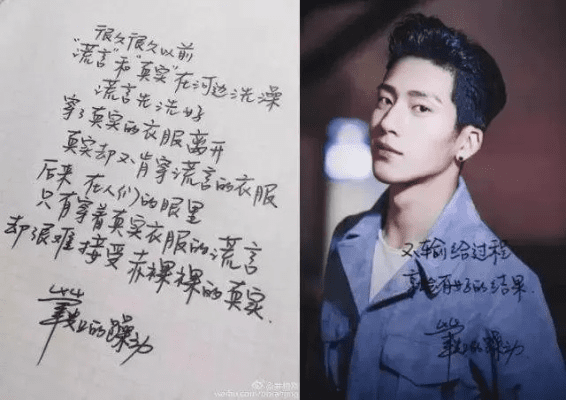 很久很久以前
“谎言”和“真实”在河边洗澡
谎言先洗好
穿了真实的衣服离开
真实却不肯穿谎言的衣服
后来 在人们的眼里
只有穿着真实衣服的谎言
却很难接受赤裸裸的真实.
的躁动
不输给过程
就会有好的结果.
的躁动